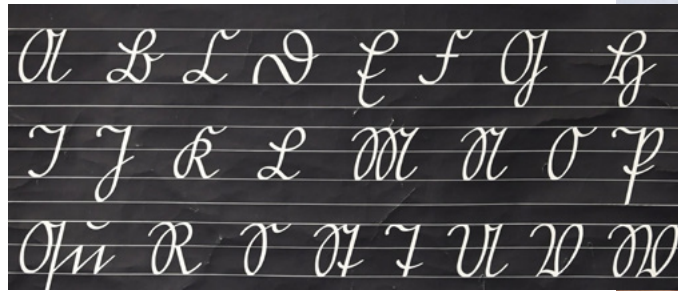 A B C D E F G H
I J K L M N O P
Qu R S St T U V W